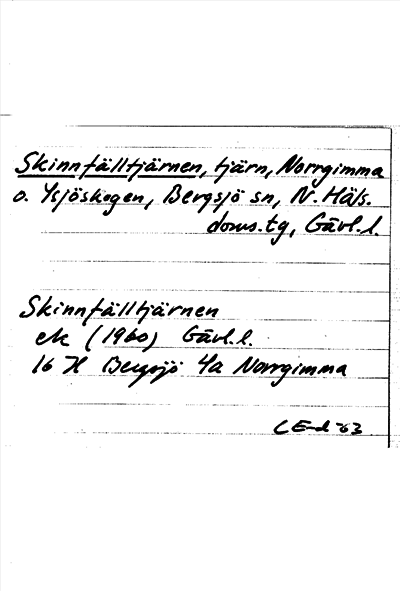 Skinnfälltjärnen, tjärn, Norrgimma
o. Ysjöskogen, Bergsjö sn, N. Häls.
doms.tg, Gävl.l.
Skinnfälltjärnen
ek (1960) Gävl.l.
16 H Bergsjö 4a Norrgimma